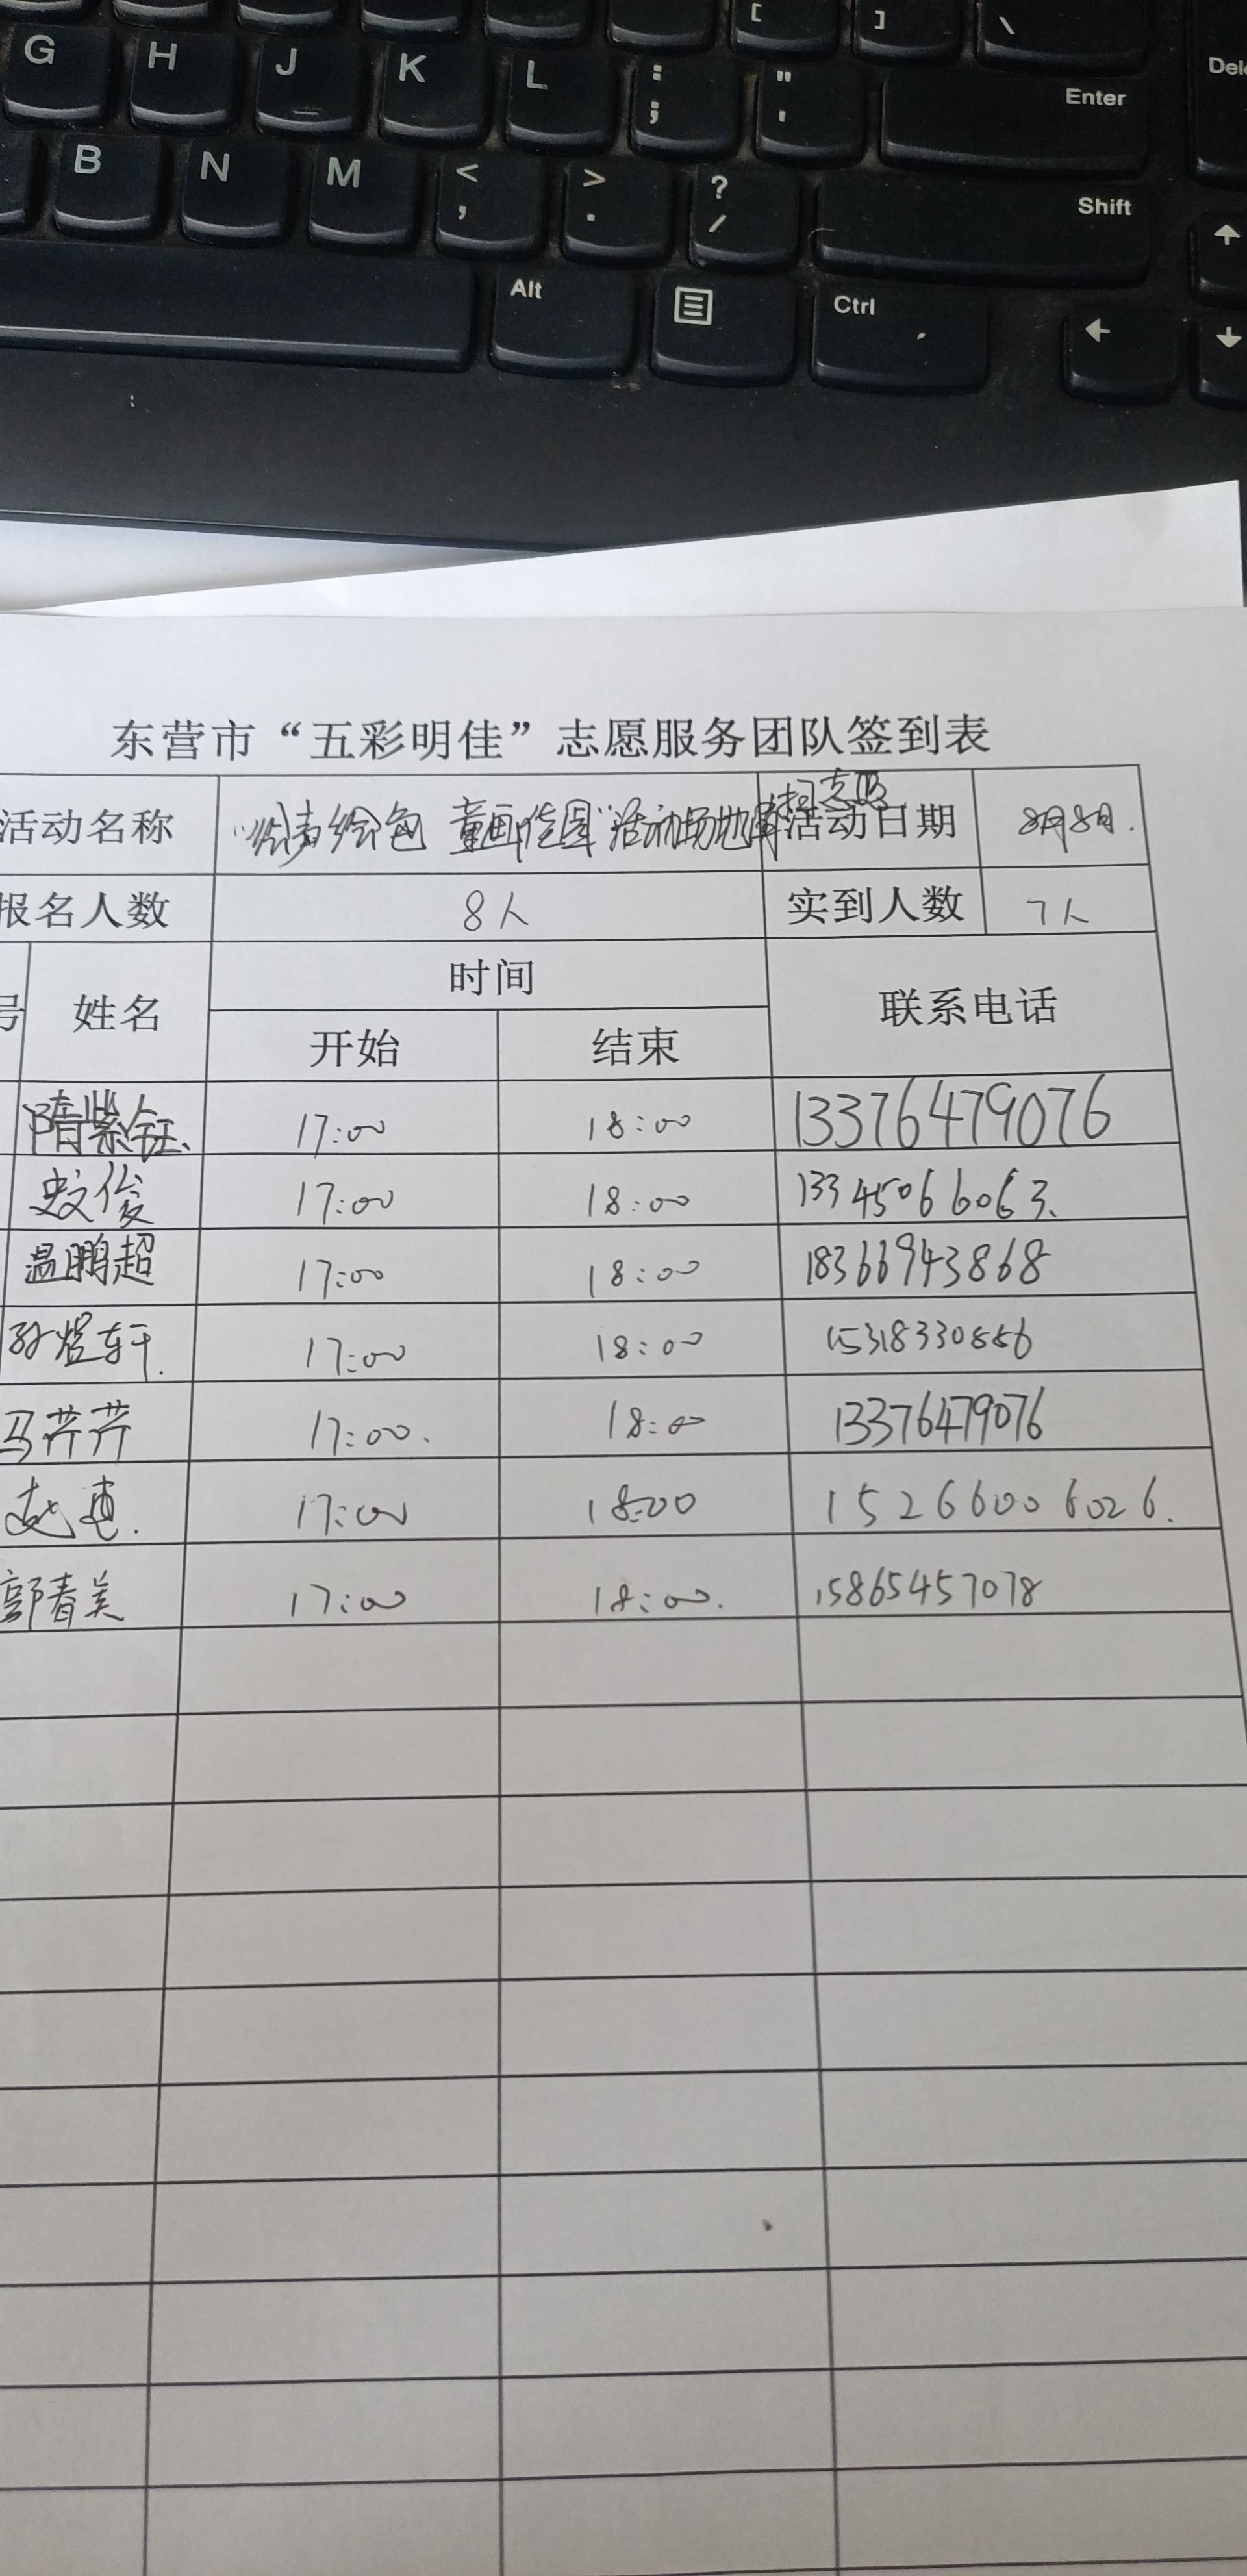 [ ] \
G H J K L : ; " ' Enter
B N M < , > . ? / Shift
Alt Ctrl
东营市“五彩明佳”志愿服务团队签到表
活动名称 “绘声绘色 童画佳园”活动场地 活动日期 8月8日.
报名人数 8人 实到人数 7人
号 姓名 时间 联系电话
开始 结束
隋紫钰 17:00 18:00 13376479076
俊 17:00 18:00 13345066063
温鹏超 17:00 18:00 18366943868
孙煜轩. 17:00 18:00
马芹芹 17:00. 18:00 13376479076
17:00 18:00 15266006026.
郭春美 17:00 18:00. 15865457078